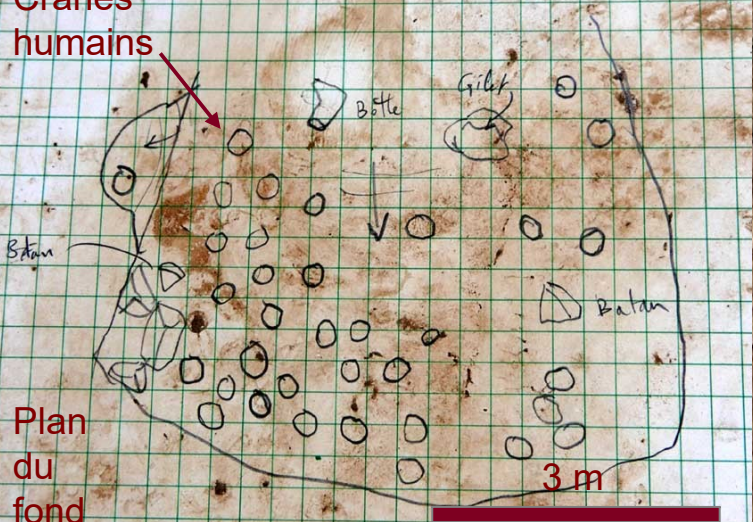 Crânes
humains
Botte
Gilet
Batan
Batan
Plan
du
fond
3 m